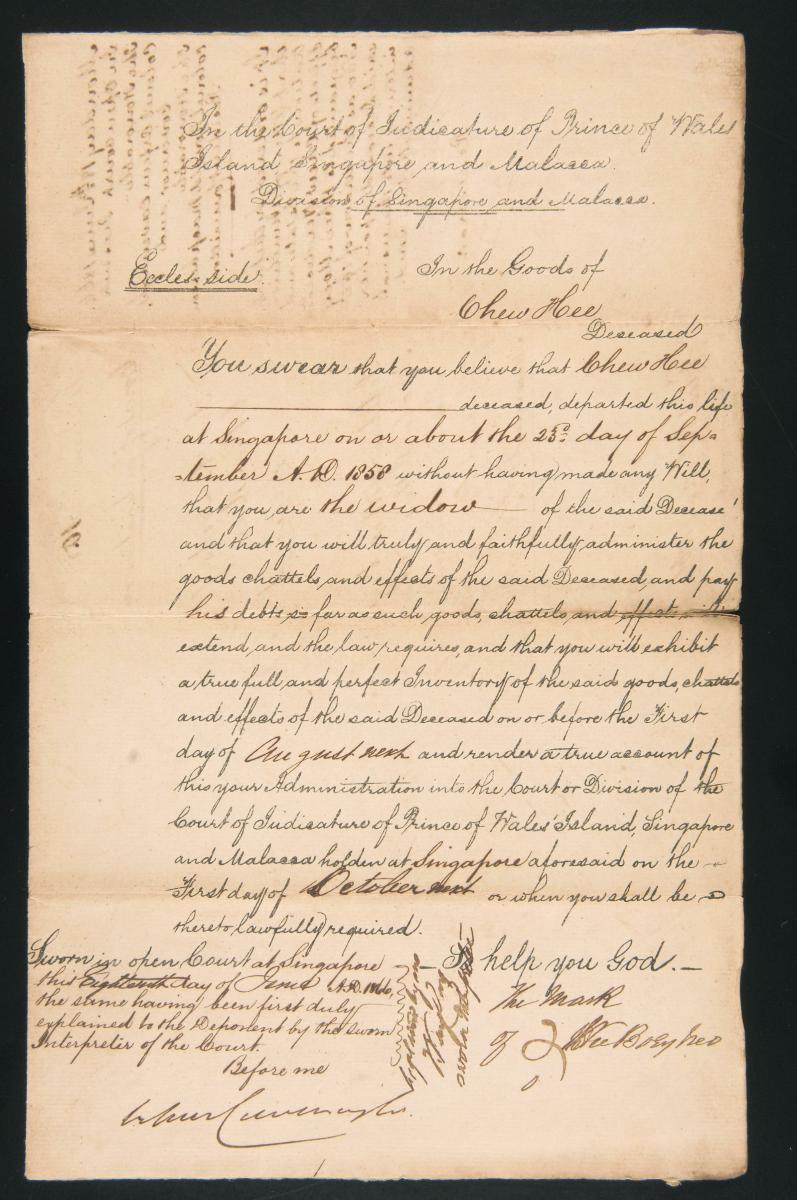 In the Court of Judicature of Prince of Wales
Island Singapore and Malacca.
Division of Singapore and Malacca.
Eccles. side.
In the Goods of
Chew Hee
Deceased
You swear that you believe that Chew Hee
deceased, departed this life
at Singapore on or about the 23rd day of Sep=
=tember A.D. 1858 without having made any Will,
that you are the widow of the said Decease'
and that you will truly and faithfully administer the
goods chattels, and effects of the said Deceased, and pay
his debts so far as such goods, chattels, and effects will
extend, and the law requires, and that you will exhibit
a true full, and perfect Inventory of the said goods, chattels
and effects of the said Deceased on or before the First
day of August next and render a true account of
this your Administration into the Court or Division of the
Court of Judicature of Prince of Wales' Island, Singapore
and Malacca holden at Singapore aforesaid on the
First day of October next or when you shall be
thereto lawfully required.
So help you God.
Sworn in open Court at Singapore
this Eighteenth day of June A.D. 1866,
the same having been first duly
explained to the Deponent by the sworn
Interpreter of the Court.
Before me
Explained by me
Sworn Interpreter
The Mark
of
Boey Neo